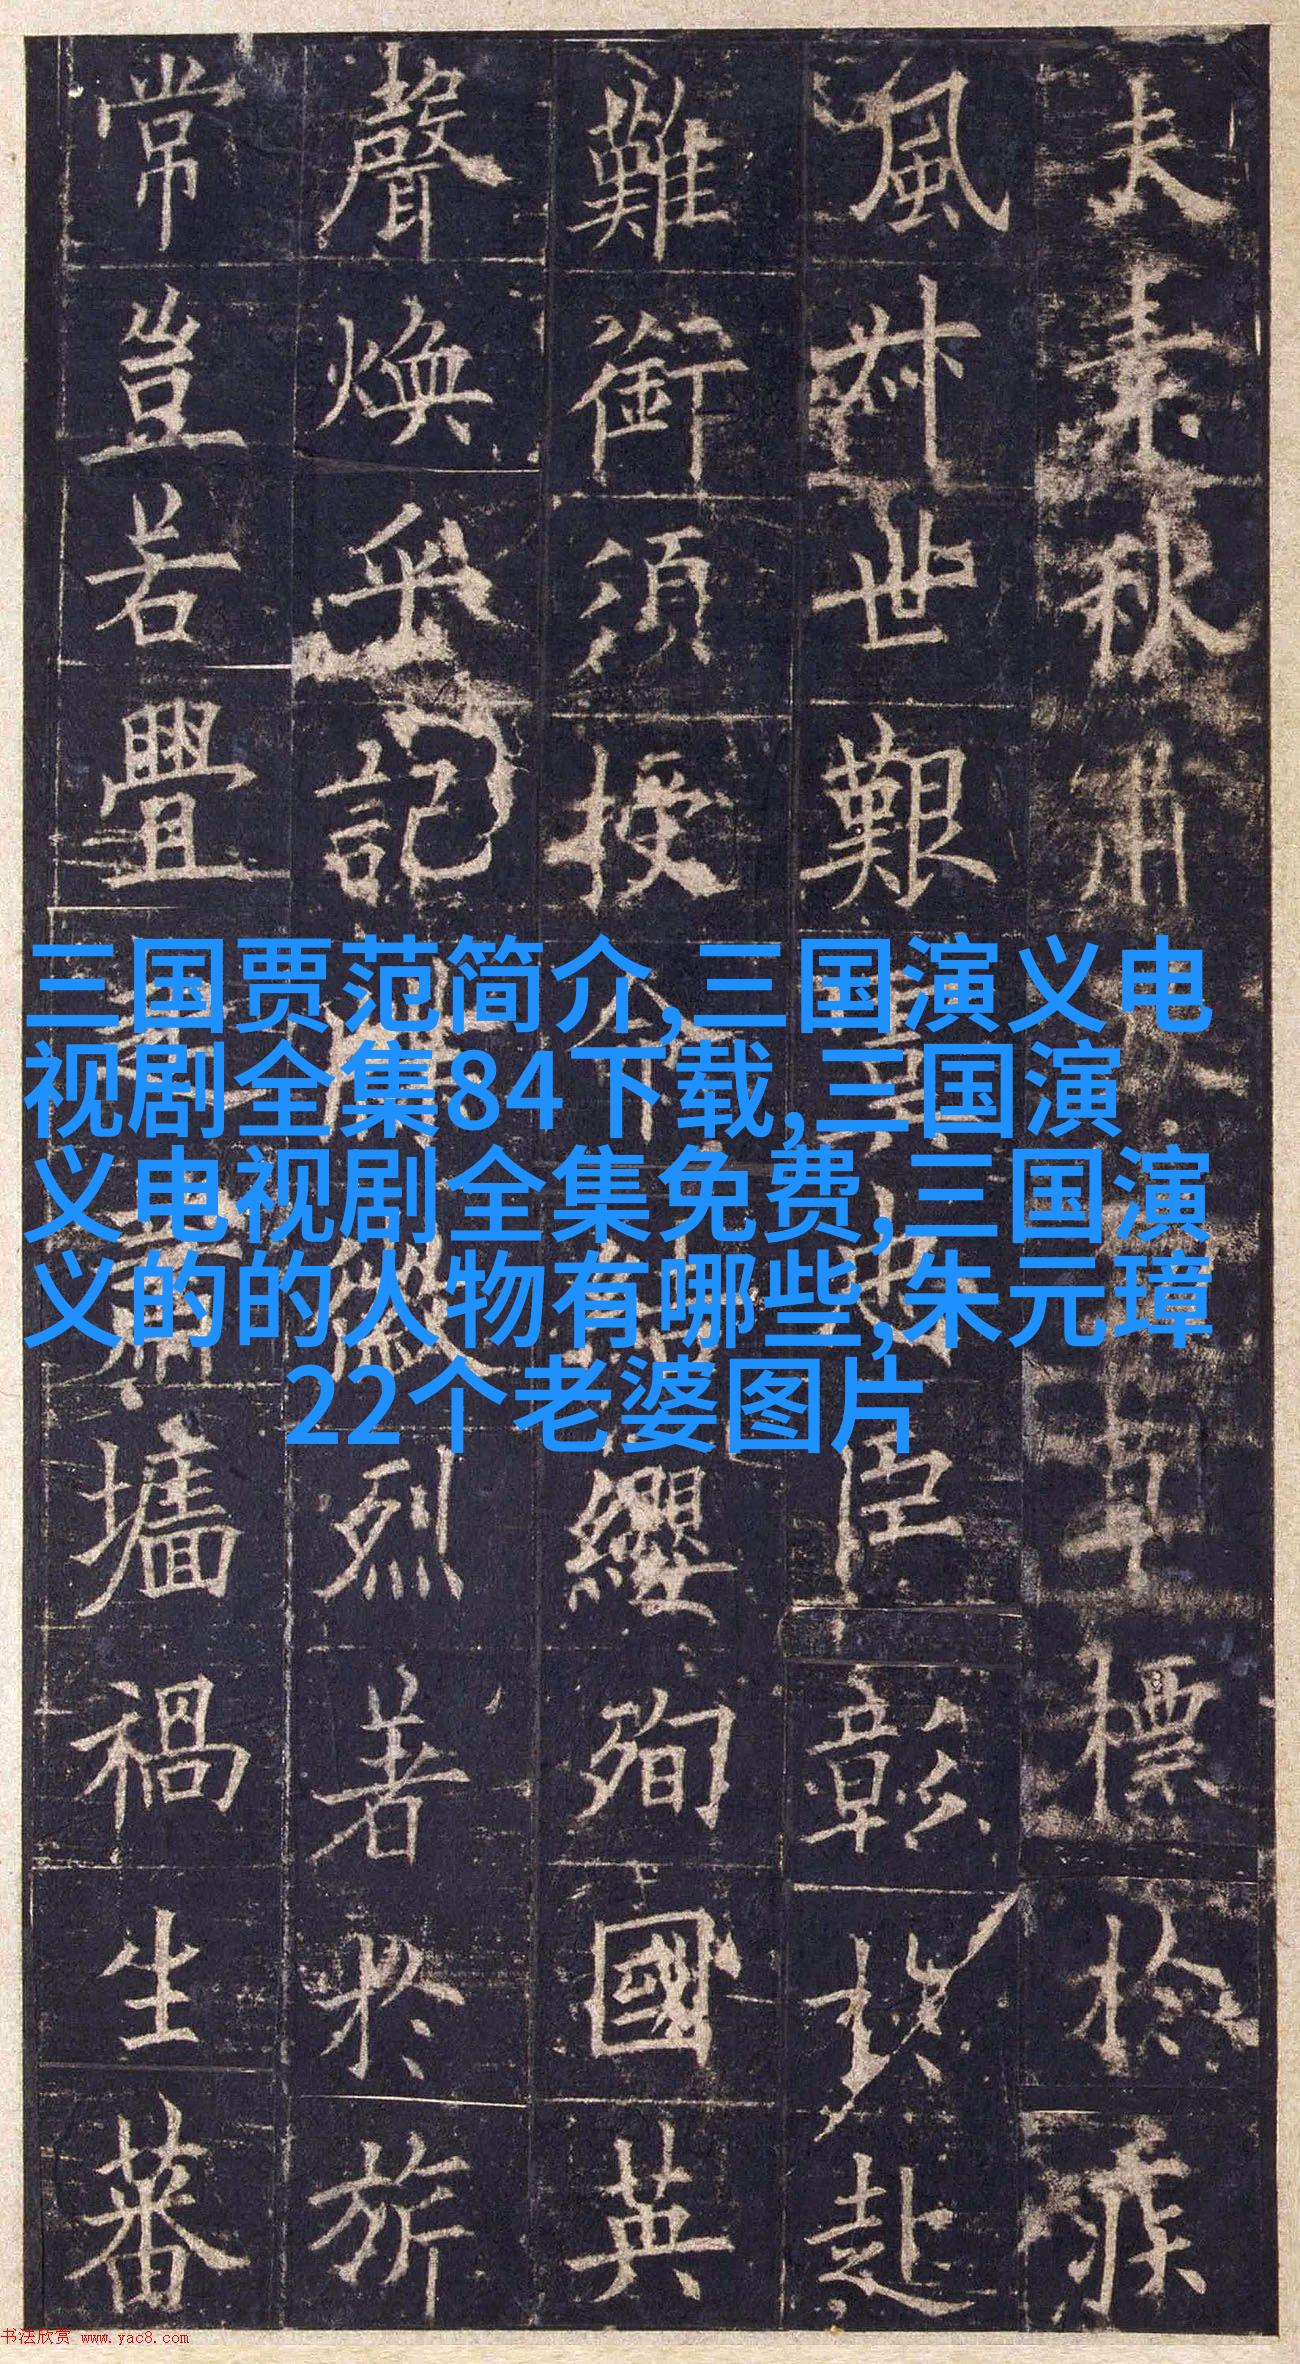 夫素秋肅草標於疾
風叔世艱虞忠臣彰於赴
難銜須授命結纓殉國英
聲煥乎記牒徽烈著於旂
常豈若舋起蕭墻禍生蕃
三国贾范简介,三国演义电
视剧全集84下载,三国演
义电视剧全集免费,三国演
义的的人物有哪些,朱元璋
22个老婆图片
书法欣赏 www.yac8.com